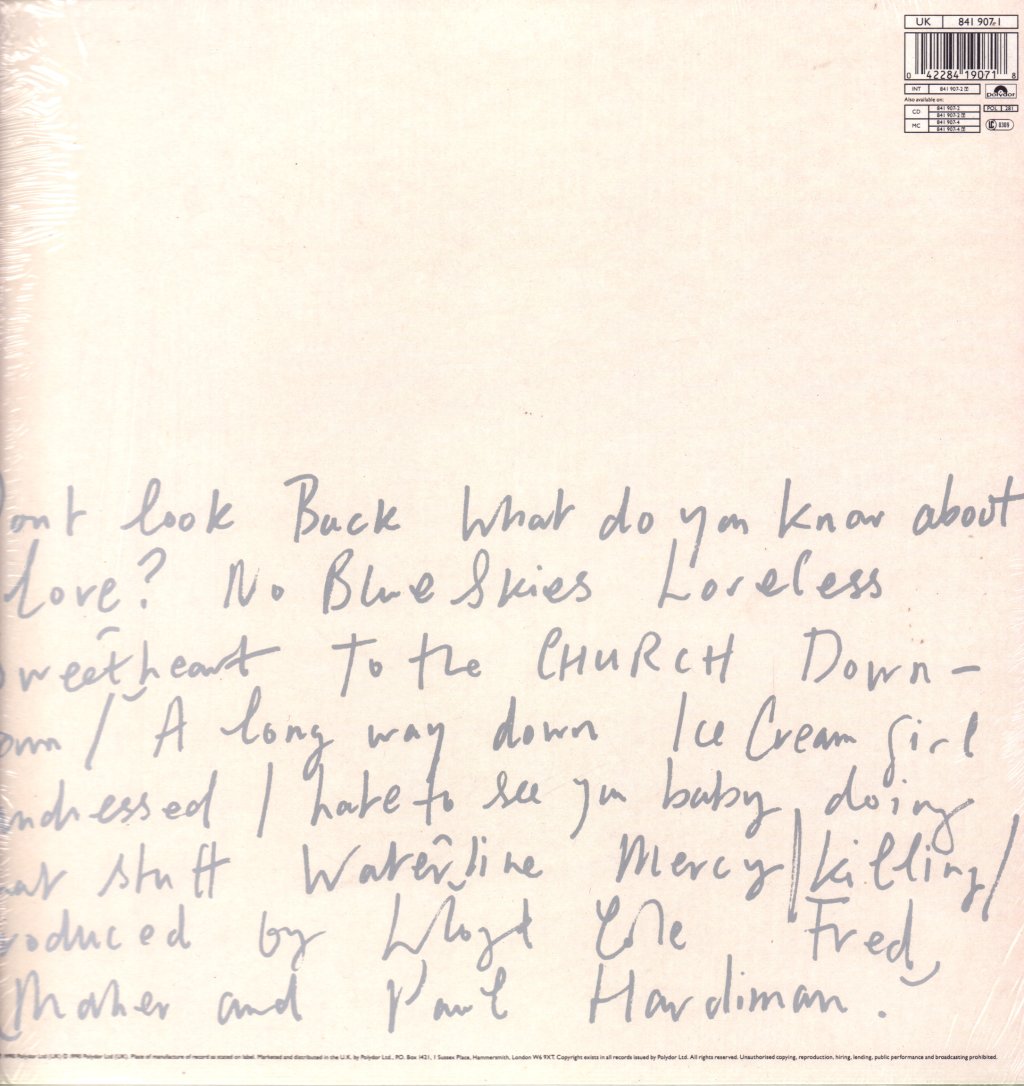 UK 841 907-1
0 42284 19071 8
INT 841 907-2
polydor
Also available on:
CD 841 907-2
841 907-2
POL I 281
MC 841 907-4
841 907-4
LC 0309
Dont look Back What do you know about
Love? No Blue Skies Loveless
Sweetheart To the CHURCH Down-
own / A long way down Ice Cream girl
undressed I hate to see you baby doing
hat stuff Waterline Mercy/killing/
roduced by Lloyd Cole Fred
Maher and Paul Hardiman.
1990 Polydor Ltd (UK) © 1990 Polydor Ltd (UK). Place of manufacture of record as stated on label. Marketed and distributed in the U.K. by Polydor Ltd., P.O. Box 1421, 1 Sussex Place, Hammersmith, London W6 9XT. Copyright exists in all records issued by Polydor Ltd. All rights reserved. Unauthorised copying, reproduction, hiring, lending, public performance and broadcasting prohibited.